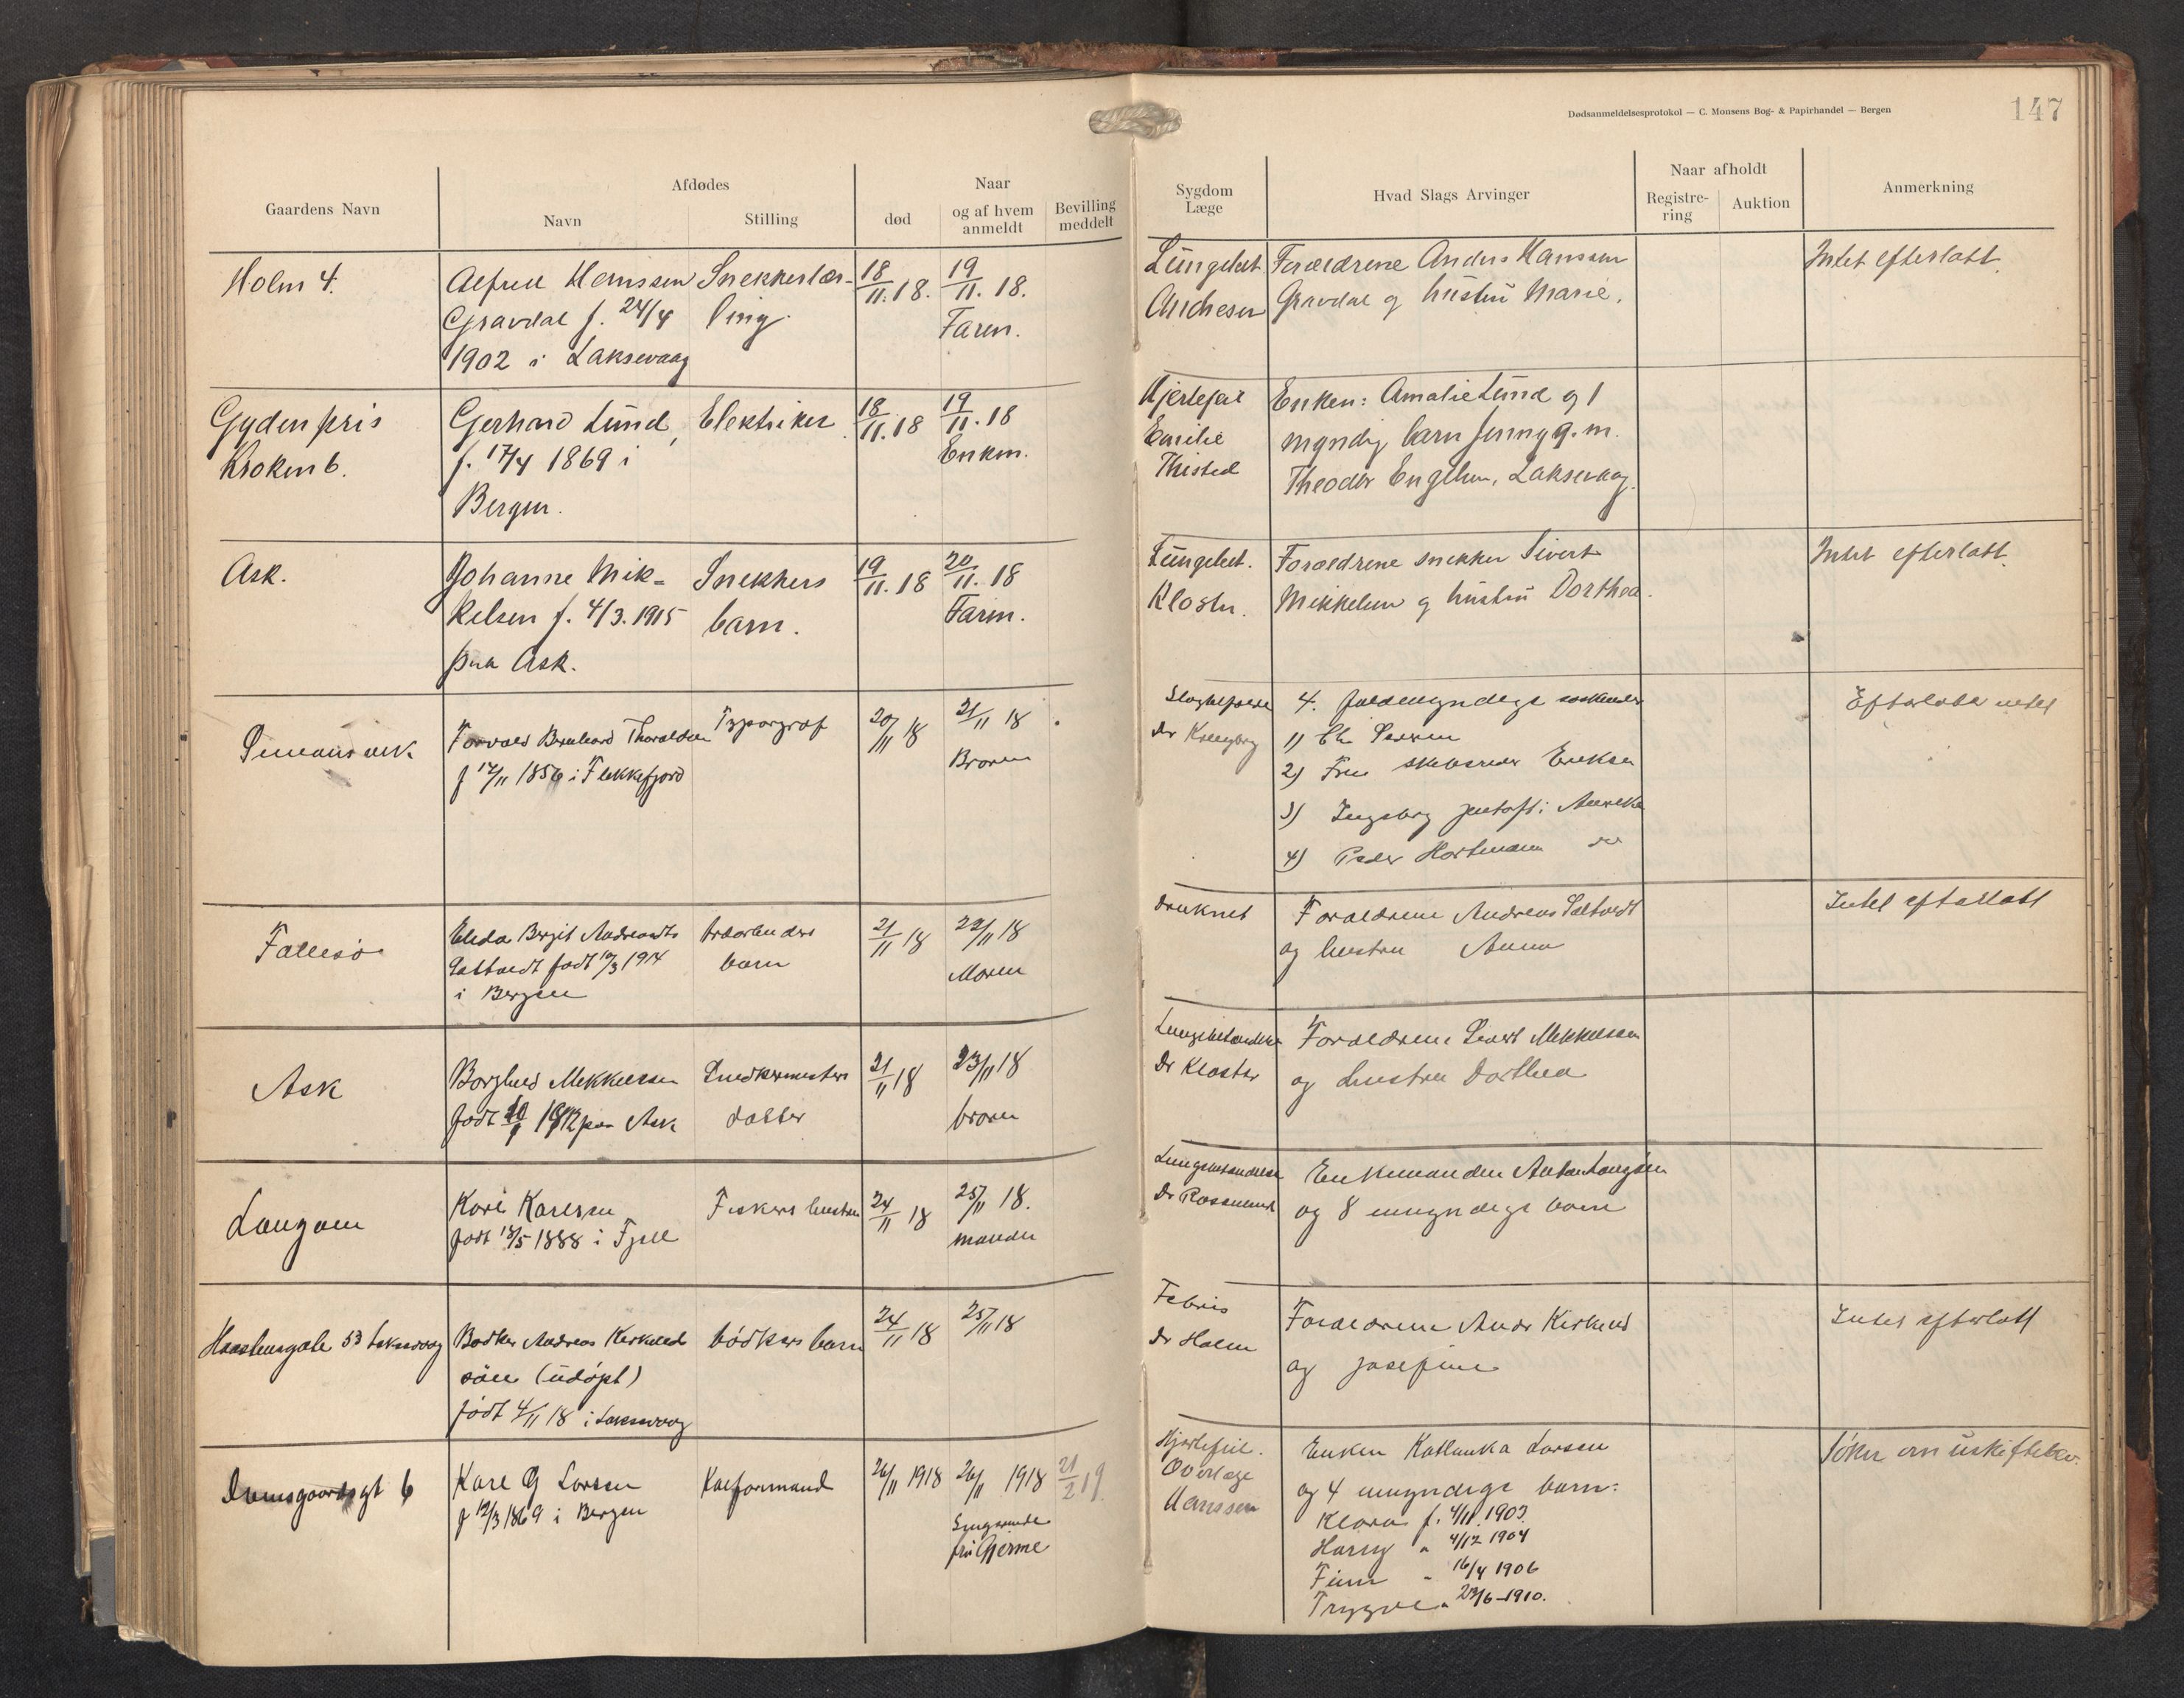 Dødsanmeldelsesprotokol — C. Monsens Bog- & Papirhandel — Bergen
147
Gaardens Navn
Afdødes
Navn
Stilling
død
Naar
og af hvem
anmeldt
Bevilling
meddelt
Sygdom
Læge
Hvad Slags Arvinger
Naar afholdt
Registre-
ring
Auktion
Anmerkning
Holm 4.
Alfred Hanssen
Gravdal f. 24/4
1902 i Laksevaag
Snekkerlær-
ling.
18/11.18.
19/11. 18.
Faren.
Lungebet.
Forældrene Anders Hanssen
Gravdal og hustru Marie.
Intet efterlatt.
Gyldenpris
Kroken 6.
Gerhard Lund,
f. 17/4 1869 i
Bergen.
Elektriker
18/11.18
19/11.18
Enken.
Hjertefeil
Thisted
Enken: Amalie Lund og 1
myndig barn Jenny g. m.
Theodor Engelsen, Laksevaag.
Ask.
Johanne Mik-
kelsen f. 4/3.1915
paa Ask.
Snekkers
barn.
19/11.18
20/11.18
Faren.
Lungebet.
Kloster.
Forældrene snekker Sivert
Mikkelsen og hustru Dorthea.
Intet efterlatt.
Torvald Bernhard Thoraldsen
f 12/11 1856 i Flekkefjord
Typograf
20/11 18
21/11 18
Broren
Dr
4. fuldmyndige søskender
1)
2) Fru Eriksen
3) Ingeborg i Amerika
4) Peder Hartmann do
Efterlater intet
Falleso
Birgit
født 10/3 1914
i Bergen
barn
21/11 18
22/11 18
Moren
druknet
Forældrene Andreas
og hustru Anna
Intet efterlatt
Ask
Borghild Mikkelsen
født 1912 paa Ask
Snedkermesters
datter
21/11 18
23/11 18
broren
Lungebetændelse
Dr Kloster
Forældrene Sivert Mikkelsen
og hustru Dorthea
Kari Karlsen
født 13/5 1888 i Fjell
Fiskers hustru
24/11 18
25/11 18.
manden
Lungebetændelse
Dr
Enkemanden Anton
og 8 umyndige barn
53 Laksevaag
Bødker Andreas Kirkelund
søn (udøpt)
født 4/11 18 i Laksevaag
bødkers barn
24/11 18
25/11 18
Febris
Dr Holm
Forældrene Andr Kirkelund
og Josefine
Intet efterlatt
Damsgaardsgt 6
Karl G Larsen
f 12/3 1869 i Bergen
Kaiformand
26/11 1918
26/11 1918
frü Gjerme
21/2 19.
Hjertefeil.
Overlæge
Hanssen
Enken Larsen
og 4 umyndige barn:
Klara f. 4/11.1903.
Harry " 4/12 1904
Finn " 16/4 1906
Trygve " 23/6-1910.
Søker om uskiftebev.